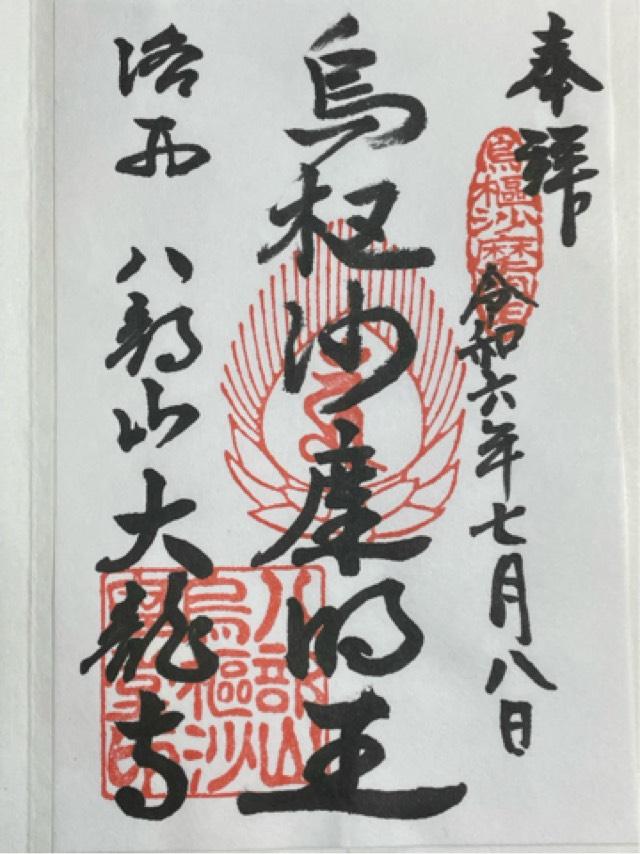 奉拝
令和六年七月八日
烏枢沙摩明王
洛西 八部山大龍寺
烏樞沙摩明王
八部山
烏樞沙